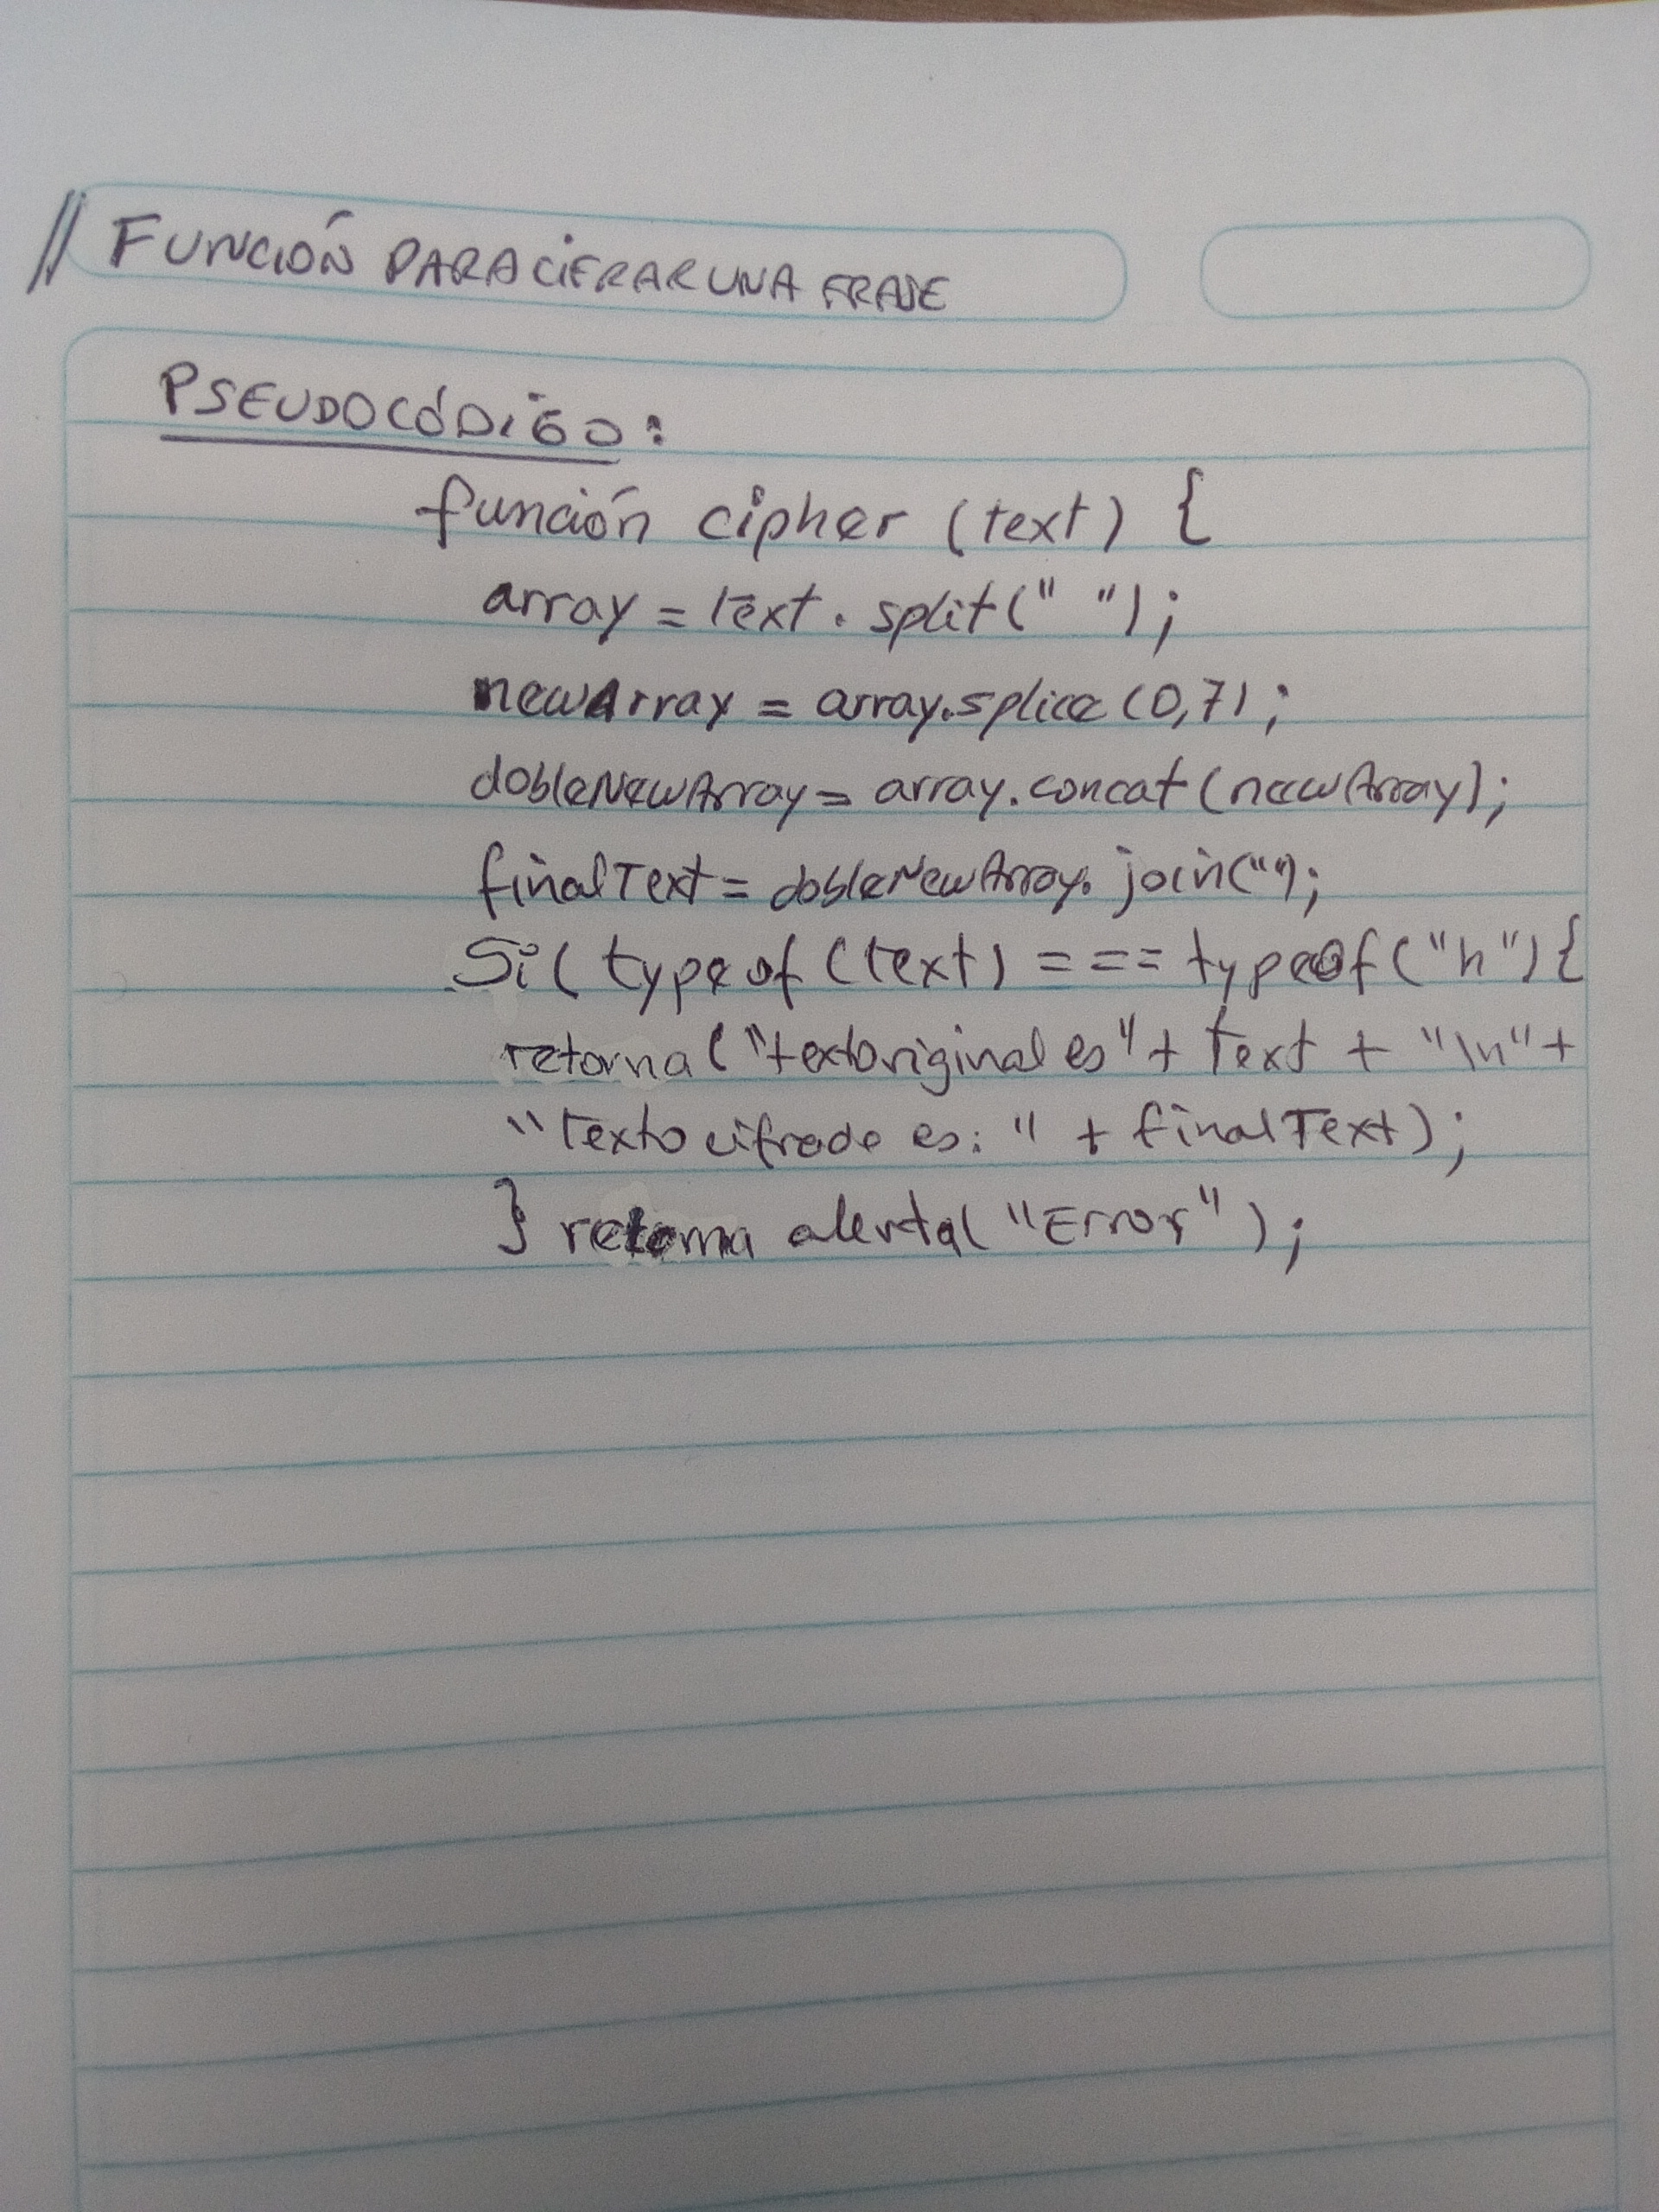 // FUNCIÓN PARA CIFRAR UNA FRASE
PSEUDOCÓDIGO:
función cipher (text) {
array = text. split(" ");
newArray = array.splice (0,7);
dobleNewArray = array.concat (newArray);
finalText = dobleNewArray. join("");
Si( typeof (text) === typeof ("h") {
retorna ("textoriginal es" + text + "\n" +
"Texto cifrado es: " + finalText);
} retorna alerta( "Error" );